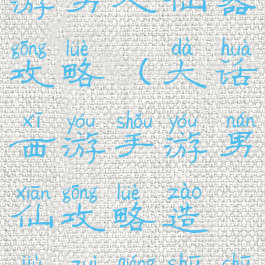 游男人仙器
gōng lüè dà huà
攻略（大话
xī yóu shǒu yóu nán
西游手游男
xiān gōng lüè zào
仙攻略造